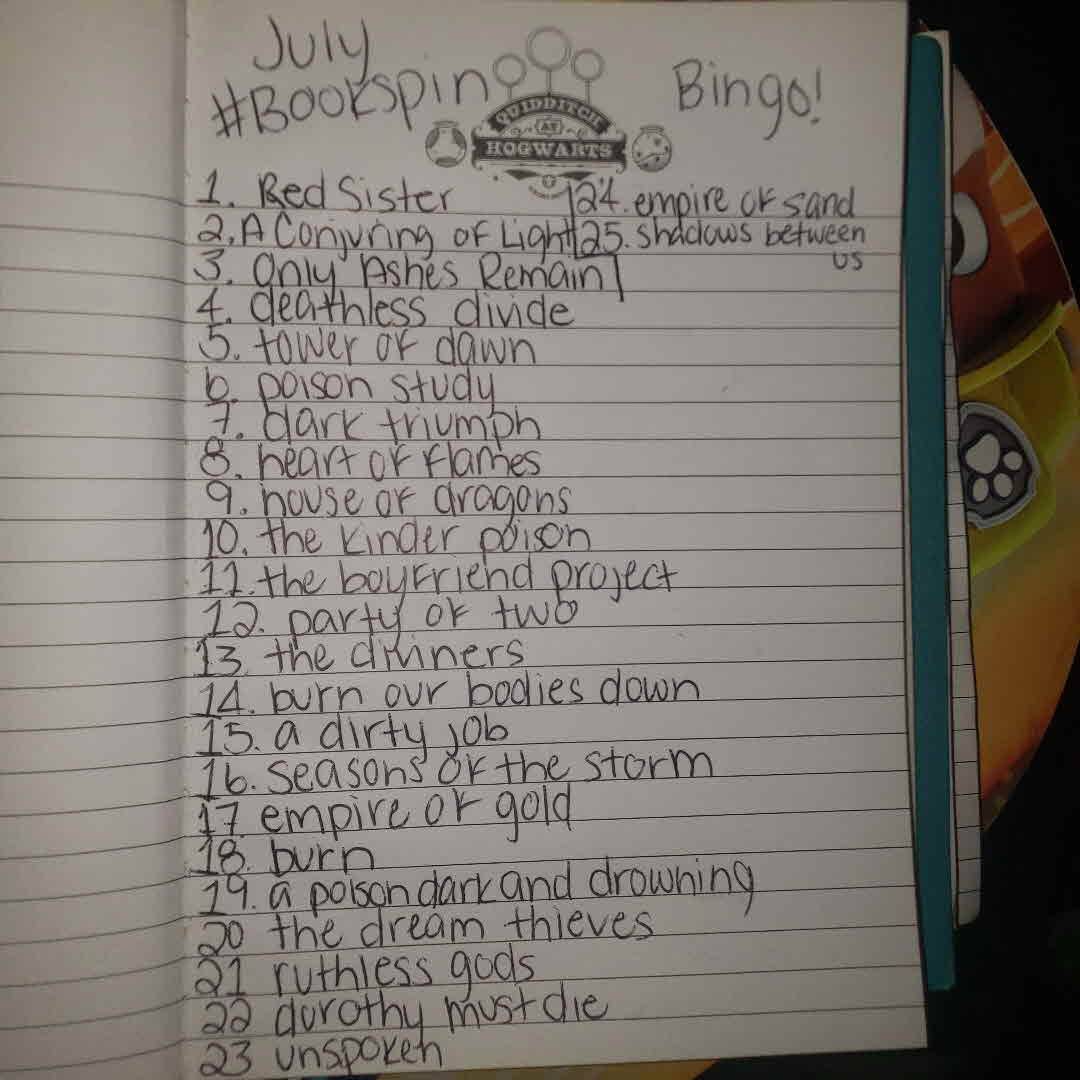 July
#Bookspin Bingo!
QUIDDITCH
AT
HOGWARTS
1. Red Sister
2. A Conjuring of Light
3. Only Ashes Remain
4. deathless divide
5. tower of dawn
6. poison study
7. dark triumph
8. heart of flames
9. house of dragons
10. the kinder poison
11. the boyfriend project
12. party of two
13. the diviners
14. burn our bodies down
15. a dirty job
16. seasons of the storm
17. empire of gold
18. burn
19. a poison dark and drowning
20 the dream thieves
21 ruthless gods
22 dorothy must die
23 unspoken
24. empire of sand
25. shadows between
us